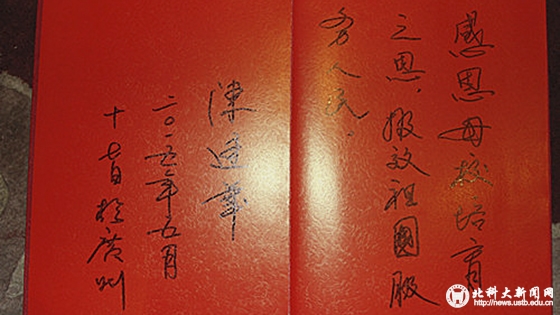 感恩母校培育
之恩，报效祖國服
务人民。
陳
二〇一五年五月
十 日於廣州
北科大新闻网
http://news.ustb.edu.cn